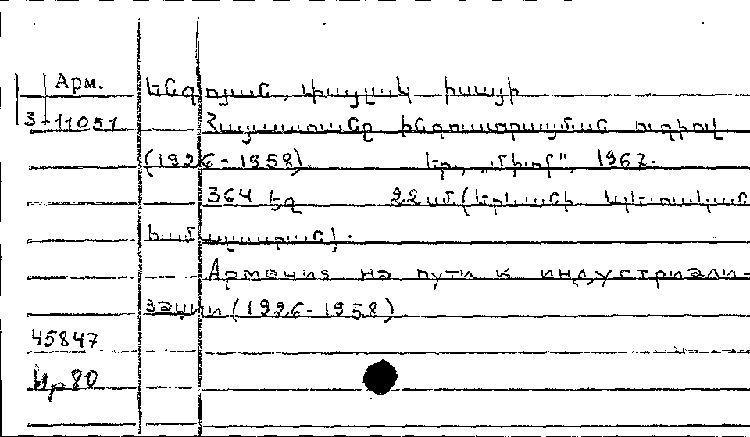 Арм.
3-11051
Հայաստանը ինդուստրացման ուղիով
(1926-1958) Եր., „Միտք", 1967.
364 էջ 22 սմ (Երևանի պետական
համալսարան).
Армения на пути к индустриали-
зации (1926-1958)
45847
80